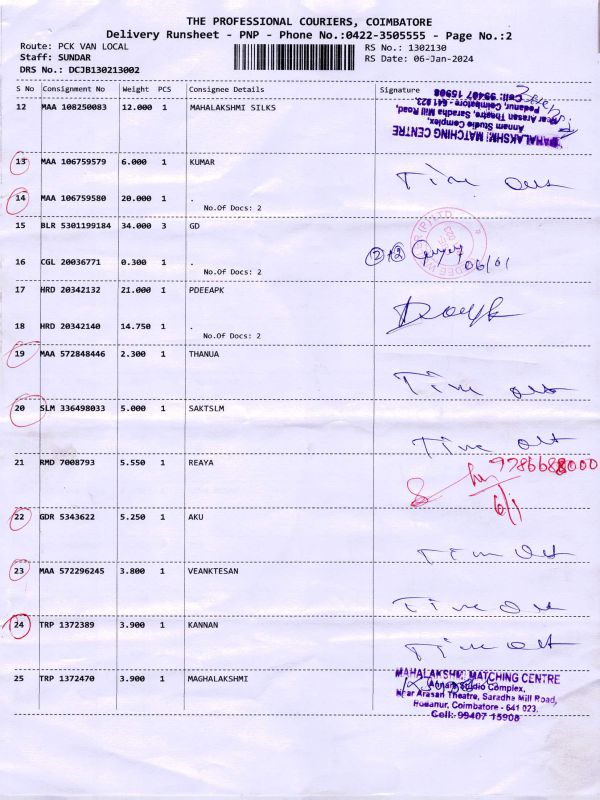 THE PROFESSIONAL COURIERS, COIMBATORE
Delivery Runsheet - PNP - Phone No.:0422-3505555 - Page No.:2
Route: PCK VAN LOCAL
RS No.: 1302130
Staff: SUNDAR
RS Date: 06-Jan-2024
DRS No.: DCJB130213002
S No Consignment No Weight PCS Consignee Details Signature
12 MAA 108250083 12.000 1 MAHALAKSHMI SILKS
MAHALAKSHMI MATCHING CENTRE
Annam Studio Complex,
Near Arasan Theatre, Saradha Mill Road,
Podanur, Coimbatore - 641 023.
Cell: 99407 15908
13 MAA 106759579 6.000 1 KUMAR
Time out
14 MAA 106759580 20.000 1 .
No.Of Docs: 2
15 BLR 5301199184 34.000 3 GD
16 CGL 20036771 0.300 1 .
06/01
No.Of Docs: 2
17 HRD 20342132 21.000 1 PDEEAPK
18 HRD 20342140 14.750 1 .
No.Of Docs: 2
19 MAA 572848446 2.300 1 THANUA
Time out
20 SLM 336498033 5.000 1 SAKTSLM
Time out
21 RMD 7008793 5.550 1 REAYA
9786688000
6/1
22 GDR 5343622 5.250 1 AKU
Time out
23 MAA 572296245 3.800 1 VEANKTESAN
Time out
24 TRP 1372389 3.900 1 KANNAN
Time out
25 TRP 1372470 3.900 1 MAGHALAKSHMI
MAHALAKSHMI MATCHING CENTRE
Annam Studio Complex,
Near Arasan Theatre, Saradha Mill Road,
Podanur, Coimbatore - 641 023.
Cell: 99407 15908